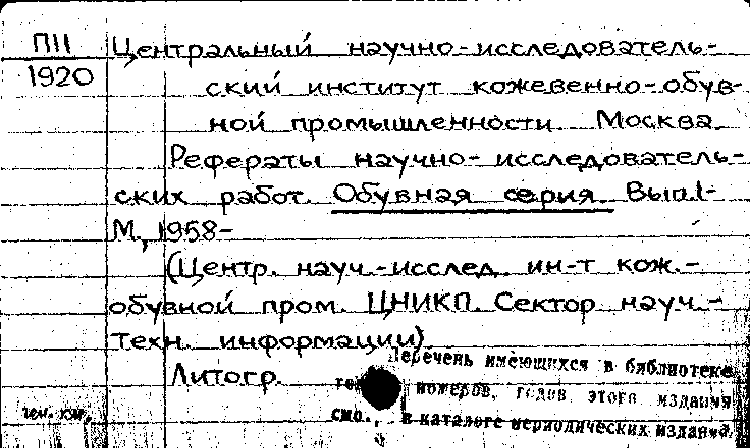 ПII
1920
Центральный научно-исследователь-
ский институт кожевенно-обув-
ной промышленности. Москва.
Рефераты научно-исследователь-
ских работ. Обувная серия. Вып.1-
М., 1958-
(Центр. науч.-исслед. ин-т кож.-
обувной пром. ЦНИКП. Сектор науч.-
техн. информации).
Литогр.
Перечень имеющихся в библиотеке
номеров, годов этого издания
см. в каталоге периодических издани